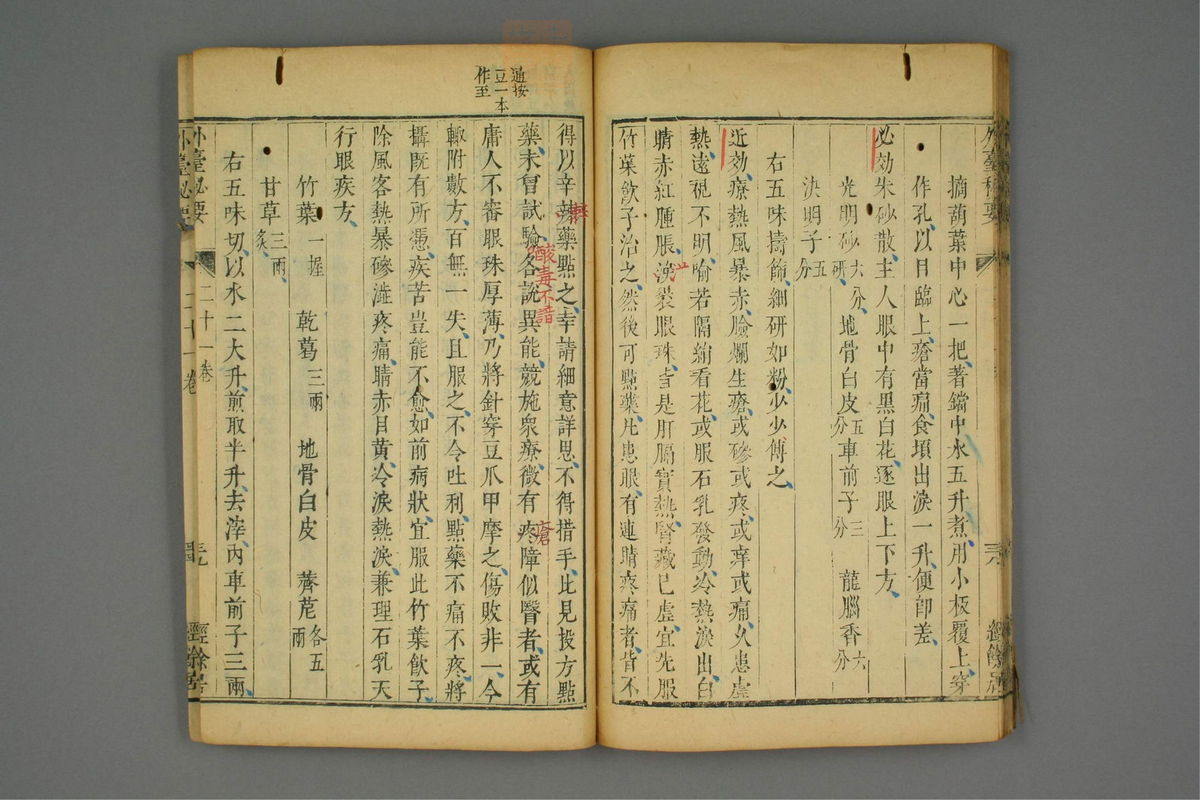 摘葫葉中心一把著鐺中水五升煮用小板覆上穿
作孔以目臨上瘡當痛食頃出淚一升便卽差
必効朱砂散主人眼中有黑白花逐眼上下方
光明砂六分研 地骨白皮五分 車前子三分 龍腦香六分
決明子五分
右五味擣篩細研如粉少少傅之
近効療熱風暴赤瞼爛生瘡或磣或疼或痒或痛久患虛
熱遠視不明喻若隔絹看花或服石乳發動冷熱淚出白
睛赤紅腫脹裛眼珠皆是肝膈實熱腎藏已虛宜先服
竹葉飲子治之然後可點藥凡患眼有連睛疼痛者皆不
得以辛辣藥點之幸請細意詳思不得措手比見投方點
藥未曾試驗各說異能競施衆療徵有疼障似醫者或有
庸人不審眼珠厚薄乃將針穿豆爪甲摩之傷敗非一今
輙附數方百無一失且服之不令吐利點藥不痛不疼將
攝既有所憑疾苦豈能不愈如前病狀宜服此竹葉飲子
除風客熱暴磣澁疼痛睛赤目黃冷淚熱淚兼理石乳天
行眼疾方
竹葉一握 乾葛三兩 地骨白皮 薺苨各五兩
甘草三兩炙
右五味切以水二大升煎取半升去滓內車前子三兩
通按
豆一本
作至
酸毒不諳
瘡
外臺祕要
二十一卷
三九
經餘居
外臺祕要
經餘居